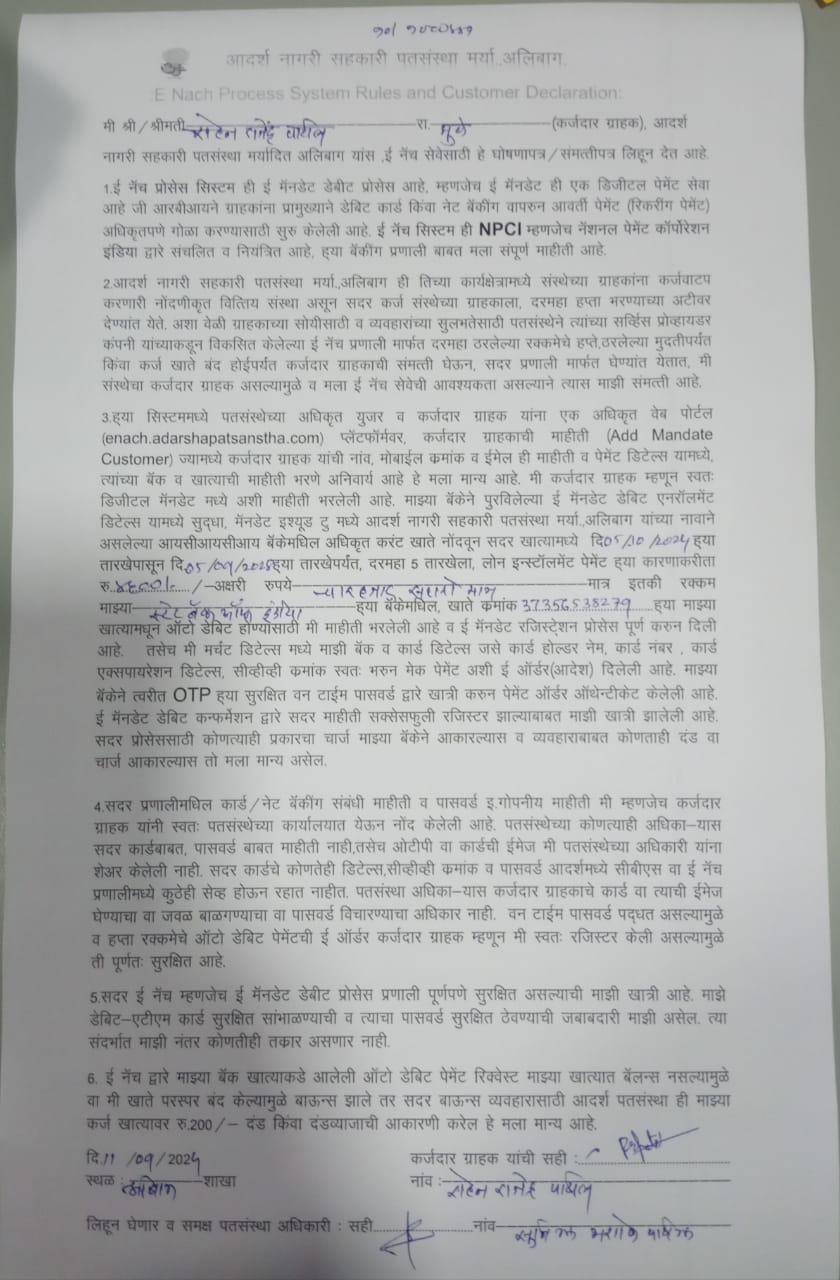 १०/१०००४४१
आदर्श नागरी सहकारी पतसंस्था मर्या.,अलिबाग.
E Nach Process System Rules and Customer Declaration:
मी श्री/श्रीमती रोहन राजेंद्र पाटील रा. मुळे (कर्जदार ग्राहक), आदर्श
नागरी सहकारी पतसंस्था मर्यादित अलिबाग यांस ,ई नॅच सेवेसाठी हे घोषणापत्र/संमत्तीपत्र लिहून देत आहे.
1.ई नॅच प्रोसेस सिस्टम ही ई मॅनडेट डेबीट प्रोसेस आहे, म्हणजेच ई मॅनडेट ही एक डिजीटल पेमेंट सेवा
आहे जी आरबीआयने ग्राहकांना प्रामुख्याने डेबिट कार्ड किंवा नेट बॅंकींग वापरुन आवर्ती पेमेंट (रिकरींग पेमेंट)
अधिकृतपणे गोळा करण्यासाठी सुरु केलेली आहे. ई नॅच सिस्टम ही NPCI म्हणजेच नॅशनल पेमेंट कॉर्पोरेशन
इंडिया द्वारे संचलित व नियंत्रित आहे, ह्या बॅकींग प्रणाली बाबत मला संपूर्ण माहीती आहे.
2.आदर्श नागरी सहकारी पतसंस्था मर्या.,अलिबाग ही तिच्या कार्यक्षेत्रामध्ये संस्थेच्या ग्राहकांना कर्जवाटप
करणारी नोंदणीकृत वित्तिय संस्था असून सदर कर्ज संस्थेच्या ग्राहकाला, दरमहा हप्ता भरण्याच्या अटीवर
देण्यांत येते. अशा वेळी ग्राहकाच्या सोयीसाठी व व्यवहारांच्या सुलभतेसाठी पतसंस्थेने त्यांच्या सर्व्हिस प्रोव्हायडर
कंपनी यांच्याकडून विकसित केलेल्या ई नॅच प्रणाली मार्फत दरमहा ठरलेल्या रक्कमेचे हप्ते,ठरलेल्या मुदतीपर्यंत
किंवा कर्ज खाते बंद होईपर्यंत कर्जदार ग्राहकाची संमत्ती घेऊन, सदर प्रणाली मार्फत घेण्यांत येतात, मी
संस्थेचा कर्जदार ग्राहक असल्यामुळे व मला ई नॅच सेवेची आवश्यकता असल्याने त्यास माझी संमत्ती आहे.
3.ह्या सिस्टममध्ये पतसंस्थेच्या अधिकृत युजर व कर्जदार ग्राहक यांना एक अधिकृत वेब पोर्टल
(enach.adarshapatsanstha.com) प्लॅटफॉर्मवर, कर्जदार ग्राहकाची माहीती (Add Mandate
Customer) ज्यामध्ये कर्जदार ग्राहक यांची नांव, मोबाईल क्रमांक व ईमेल ही माहीती व पेमेंट डिटेल्स यामध्ये,
त्यांच्या बॅंक व खात्याची माहीती भरणे अनिवार्य आहे हे मला मान्य आहे. मी कर्जदार ग्राहक म्हणून स्वतः
डिजीटल मॅनडेट मध्ये अशी माहीती भरलेली आहे. माझ्या बॅकेने पुरविलेल्या ई मॅनडेट डेबिट एनरॉलमेंट
डिटेल्स यामध्ये सुद्धा, मॅनडेट इश्यूड टु मध्ये आदर्श नागरी सहकारी पतसंस्था मर्या.,अलिबाग यांच्या नावाने
असलेल्या आयसीआयसीआय बॅकेमधिल अधिकृत करंट खाते नोंदवून सदर खात्यामध्ये दि05/10/2024ह्या
तारखेपासून दि.05/09/2028ह्या तारखेपर्यंत, दरमहा 5 तारखेला, लोन इन्स्टॉलमेंट पेमेंट ह्या कारणाकरीता
रु.४६००/-./-अक्षरी रुपये चार हजार सहाशे मात्र मात्र इतकी रक्कम
माझ्या स्टेट बॅंक ऑफ इंडिया ह्या बॅकेमधिल, खाते क्रमांक 37356538279 ह्या माझ्या
खात्यामधून ऑटो डेबिट होण्यांसाठी मी माहीती भरलेली आहे व ई मॅनडेट रजिस्ट्रेशन प्रोसेस पूर्ण करुन दिली
आहे. तसेच मी मर्चंट डिटेल्स मध्ये माझी बॅक व कार्ड डिटेल्स जसे कार्ड होल्डर नेम, कार्ड नंबर , कार्ड
एक्सपायरेशन डिटेल्स, सीव्हीव्ही क्रमांक स्वतः भरुन मेक पेमेंट अशी ई ऑर्डर(आदेश) दिलेली आहे. माझ्या
बॅकेने त्वरीत OTP ह्या सुरक्षित वन टाईम पासवर्ड द्वारे खात्री करुन पेमेंट ऑर्डर ऑथेन्टीकेट केलेली आहे.
ई मॅनडेट डेबिट कन्फर्मेशन द्वारे सदर माहीती सक्सेसफुली रजिस्टर झाल्याबाबत माझी खात्री झालेली आहे.
सदर प्रोसेससाठी कोणत्याही प्रकारचा चार्ज माझ्या बॅकेने आकारल्यास व व्यवहाराबाबत कोणताही दंड वा
चार्ज आकारल्यास तो मला मान्य असेल.
4.सदर प्रणालीमधिल कार्ड/नेट बॅकींग संबंधी माहीती व पासवर्ड इ.गोपनीय माहीती मी म्हणजेच कर्जदार
ग्राहक यांनी स्वतः पतसंस्थेच्या कार्यालयात येऊन नोंद केलेली आहे. पतसंस्थेच्या कोणत्याही अधिका–यास
सदर कार्डबाबत, पासवर्ड बाबत माहीती नाही,तसेच ओटीपी वा कार्डची ईमेज मी पतसंस्थेच्या अधिकारी यांना
शेअर केलेली नाही. सदर कार्डचे कोणतेही डिटेल्स,सीव्हीव्ही क्रमांक व पासवर्ड आदर्शमध्ये सीबीएस वा ई नॅच
प्रणालीमध्ये कुठेही सेव्ह होऊन रहात नाहीत. पतसंस्था अधिका–यास कर्जदार ग्राहकाचे कार्ड वा त्याची ईमेज
घेण्याचा वा जवळ बाळगण्याचा वा पासवर्ड विचारण्याचा अधिकार नाही. वन टाईम पासवर्ड पद्धत असल्यामुळे
व हप्ता रक्कमेचे ऑटो डेबिट पेमेंटची ई ऑर्डर कर्जदार ग्राहक म्हणून मी स्वतः रजिस्टर केली असल्यामुळे
ती पूर्णतः सुरक्षित आहे.
5.सदर ई नॅच म्हणजेच ई मॅनडेट डेबीट प्रोसेस प्रणाली पूर्णपणे सुरक्षित असल्याची माझी खात्री आहे. माझे
डेबिट–एटीएम कार्ड सुरक्षित सांभाळण्याची व त्याचा पासवर्ड सुरक्षित ठेवण्याची जबाबदारी माझी असेल. त्या
संदर्भात माझी नंतर कोणतीही तक्रार असणार नाही.
6. ई नॅच द्वारे माझ्या बॅक खात्याकडे आलेली ऑटो डेबिट पेमेंट रिक्वेस्ट माझ्या खात्यात बॅलन्स नसल्यामुळे
वा मी खाते परस्पर बंद केल्यामुळे बाऊन्स झाले तर सदर बाऊन्स व्यवहारासाठी आदर्श पतसंस्था ही माझ्या
कर्ज खात्यावर रु.200/– दंड किंवा दंडव्याजाची आकारणी करेल हे मला मान्य आहे.
दि.11/09/2024 कर्जदार ग्राहक यांची सही :
स्थळ : अलिबाग शाखा नांव : रोहन राजेंद्र पाटील
लिहून घेणार व समक्ष पतसंस्था अधिकारी : सही नांव